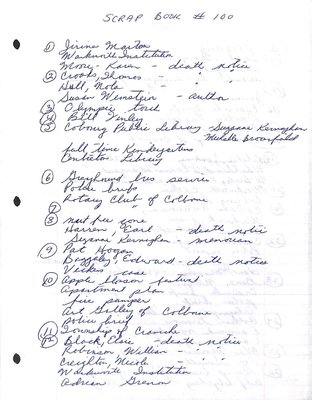 SCRAP BOOK # 100
① Jirina Marton
Warkworth Institution
Moore, Karen - death notice
② Crooks, Thomas - " "
Hull, Nola - " "
Susan Weinstein - author
③ Olympic torch
④ Bill Finley
⑤ Colborne Public Library - Suzanne Kernaghan
Michelle
full time Kindergarten
Library
⑥ Greyhound bus service
Police briefs
Rotary Club of Colborne
⑦
⑧ nut free zone
Harren, Earl - death notice
Suzanne Kernaghan - memoriam
⑨ Pat Hogan
Baggaley, Edward - death notice
case
⑩ Apple blossom festival
Apartment plan
fire pumper
Art Gallery of Colborne
Police brief
⑪ Township of Cramahe
⑫ Black, Clair - death notice
Robinson, William - " "
Creighton, Nicole - " "
Warkworth Institution
Adrian